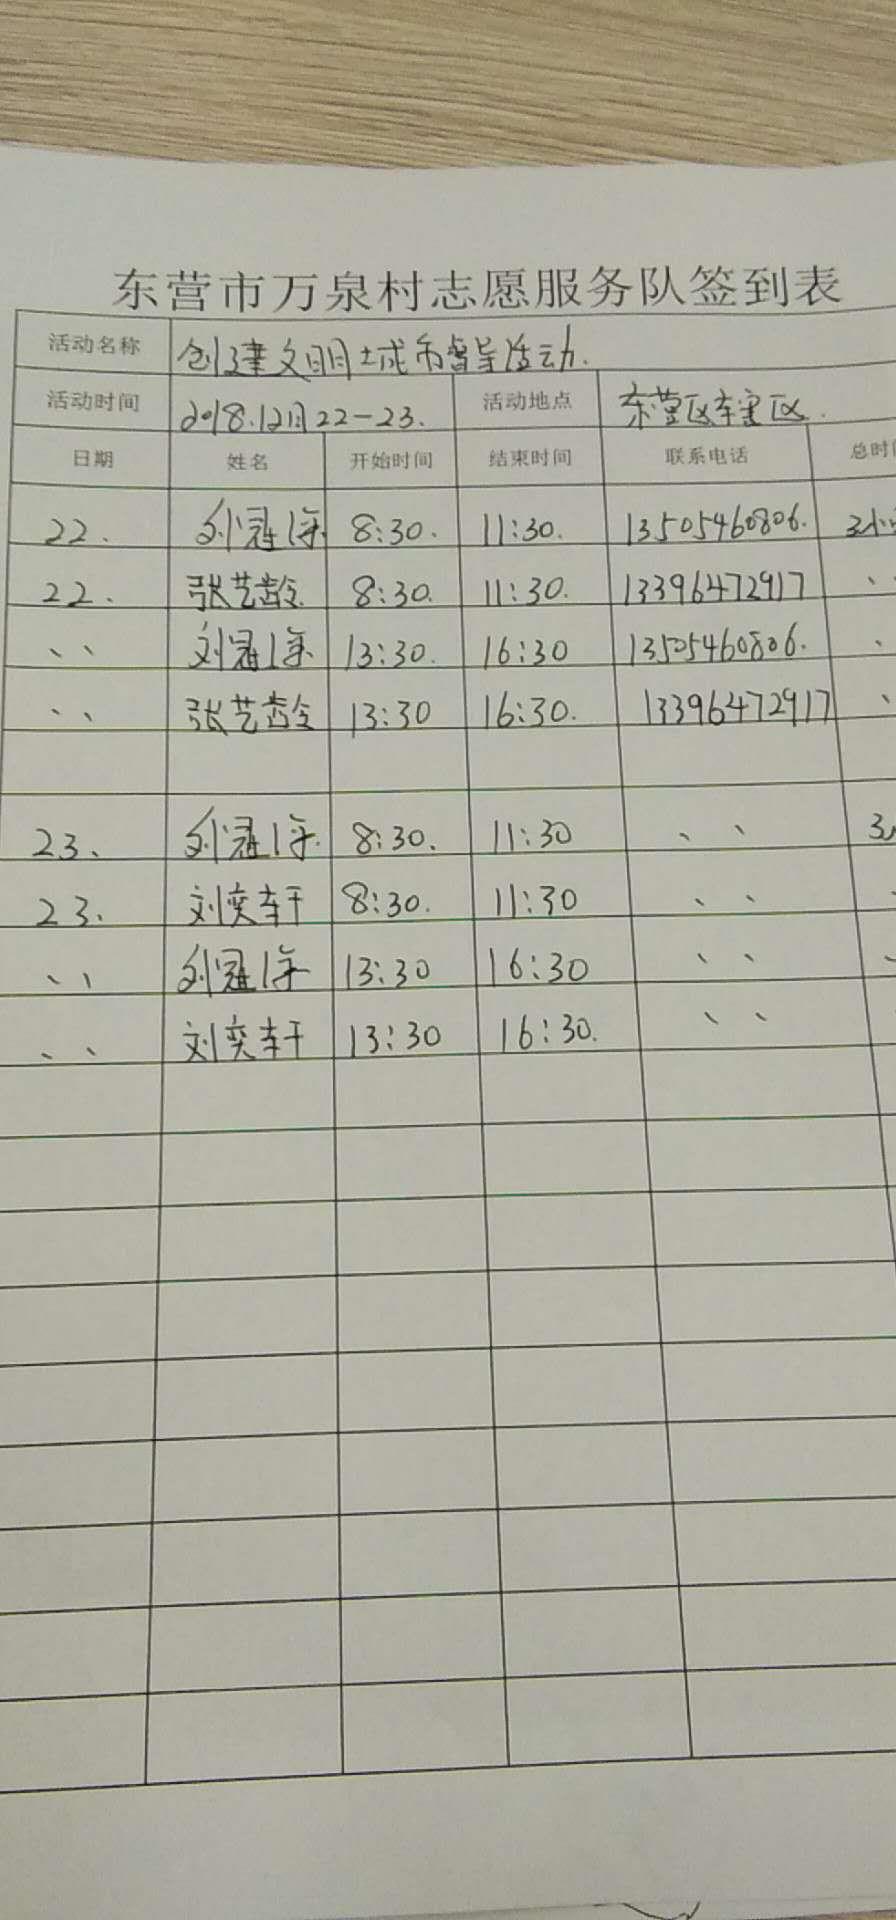 东营市万泉村志愿服务队签到表
活动名称 创建文明城市督导活动.
活动时间 2018.12月22-23. 活动地点 东营区辖区.
日期 姓名 开始时间 结束时间 联系电话 总时
22. 刘冠 8:30. 11:30. 13505460806. 3小
22. 张艺龄 8:30. 11:30. 13396472917 、
、、 刘冠 13:30. 16:30 13505460806. 、
、、 张艺龄 13:30 16:30. 13396472917 、
23、 刘冠 8:30. 11:30 、、 3
23. 刘奕轩 8:30. 11:30 、、 、
、、 刘冠 13:30 16:30 、、 、
、、 刘奕轩 13:30 16:30. 、、